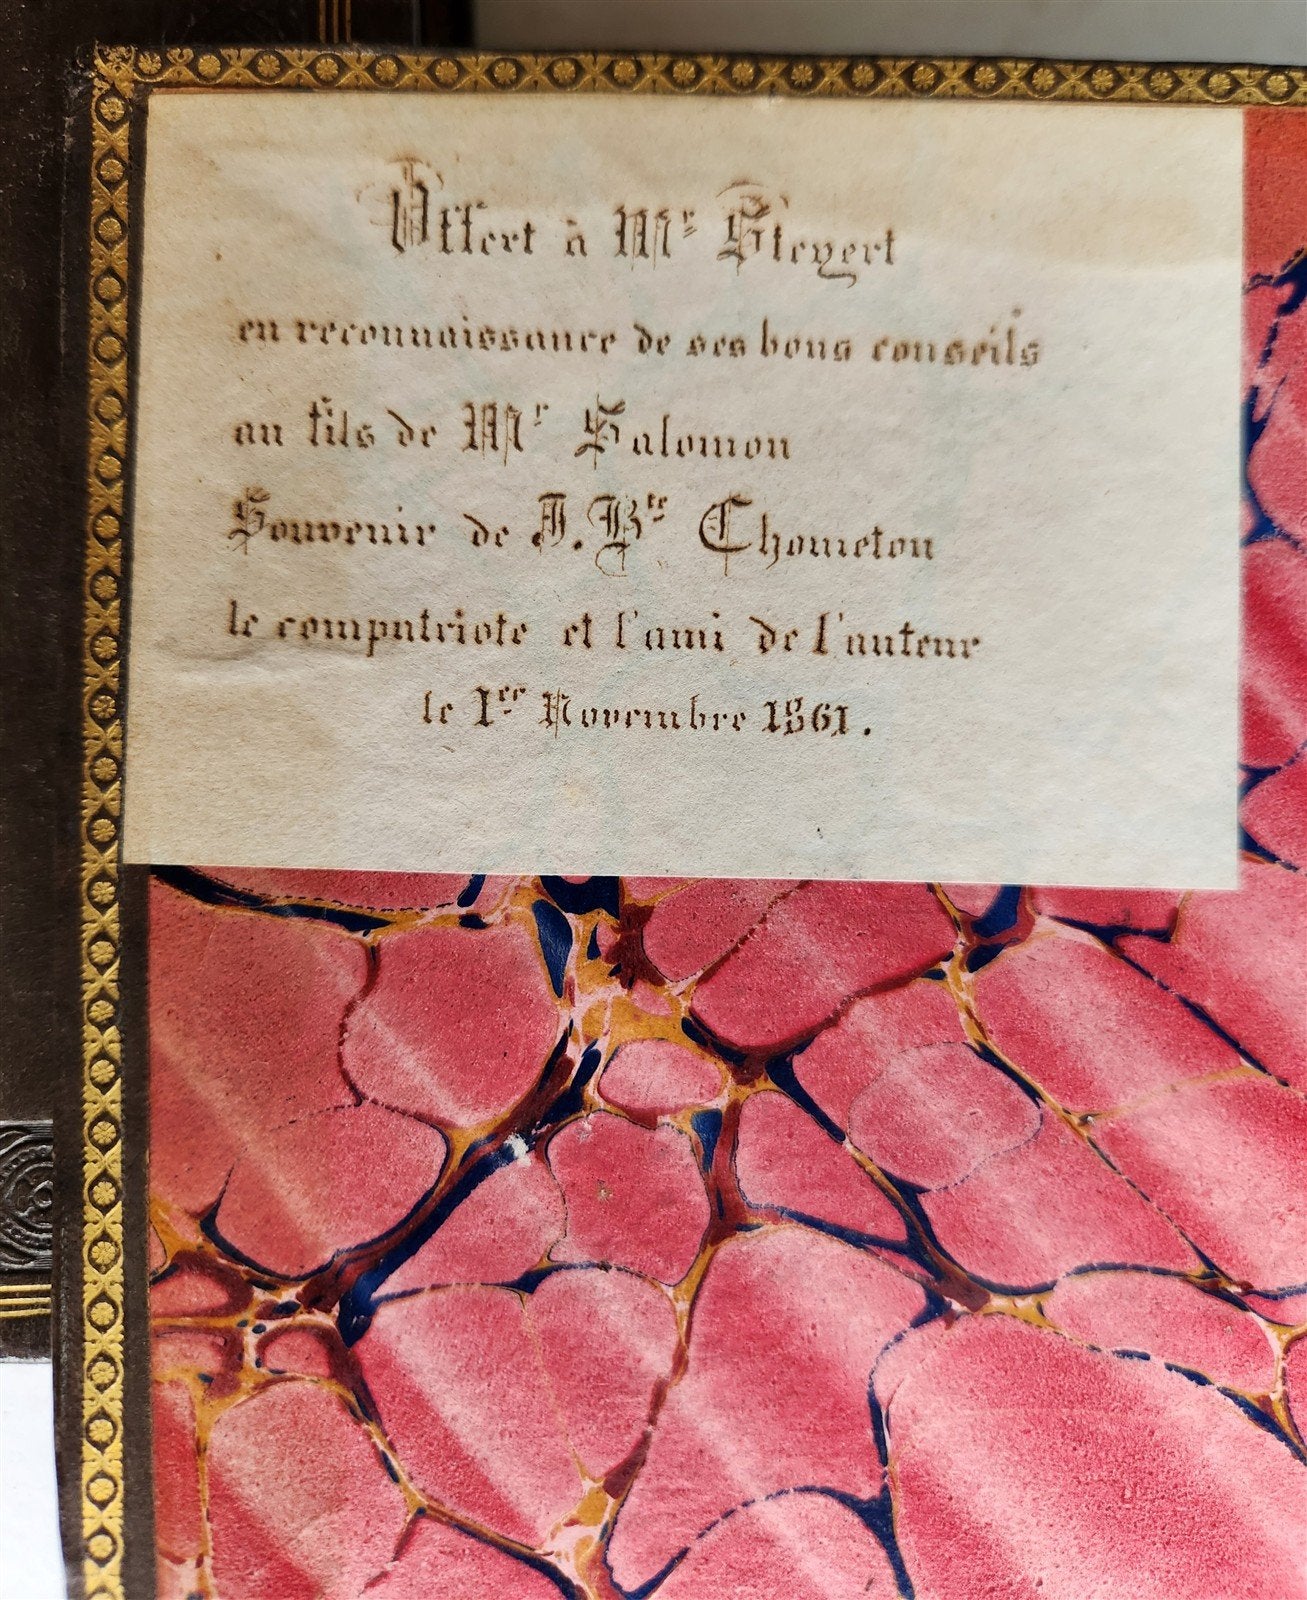 Offert à Mr Steyert
en reconnaissance de ses bons conseils
au fils de Mr Salomon
Souvenir de J. Bte Chometon
le compatriote et l'ami de l'auteur
le 1er Novembre 1861.